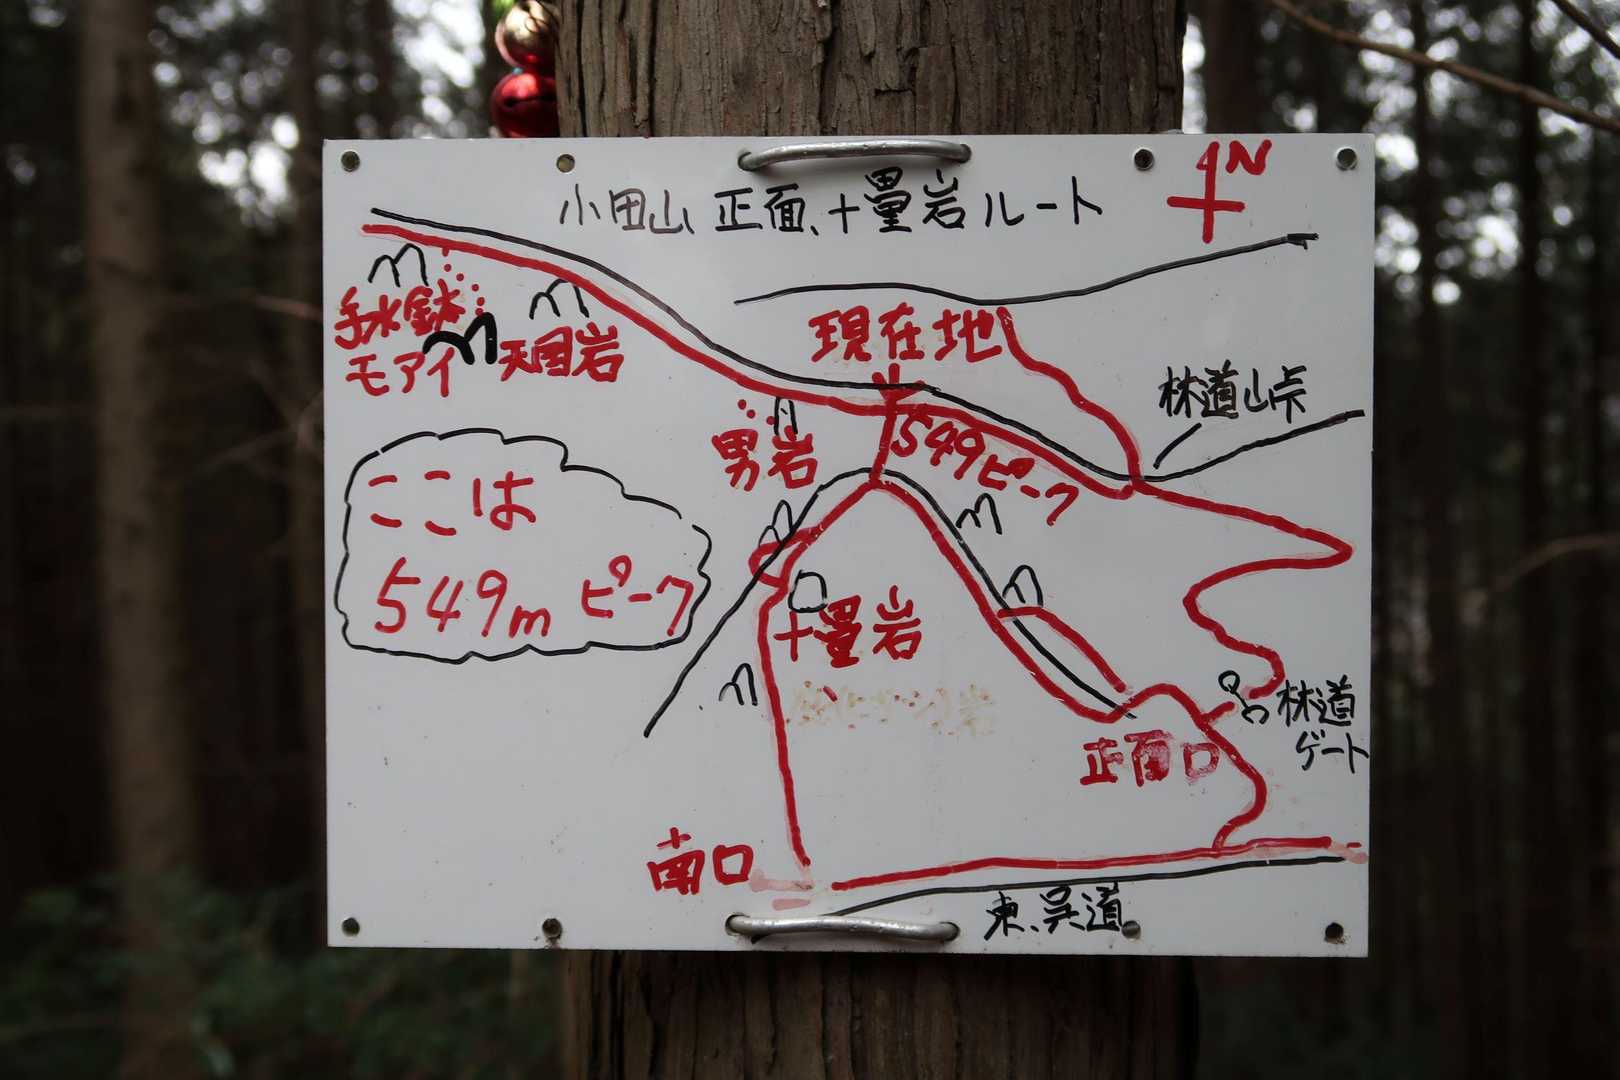 小田山、正面、十畳岩ルート
N
手水鉢
モアイ
天国岩
現在地
林道峠
男岩
549ピーク
ここは
549m ピーク
十畳岩
林道
ゲート
正面口
南口
東、呉道